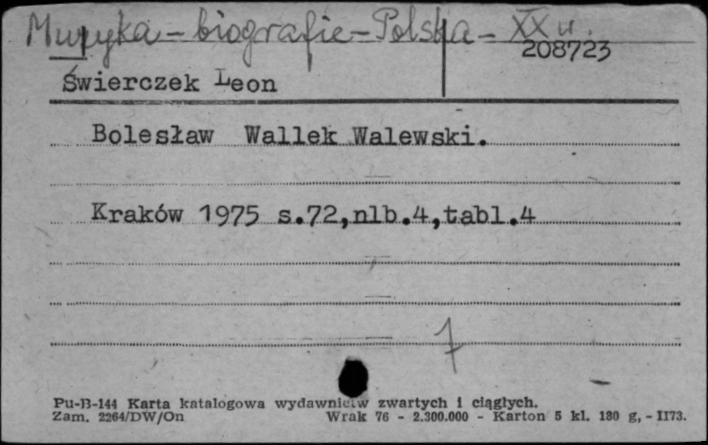 Muzyka - biografie - Polska - XX w.
208723
Świerczek Leon
Bolesław Wallek Walewski.
Kraków 1975 s.72,nlb.4,tabl.4
7
Pu-B-144 Karta katalogowa wydawnictw zwartych i ciągłych.
Zam. 2264/DW/On Wrak 76 - 2.300.000 - Karton 5 kl. 180 g, - II73.